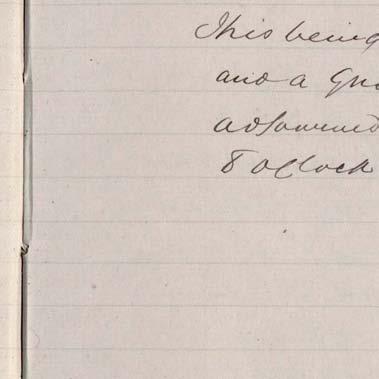 This being
and a Qu
adjourned
8 oclock